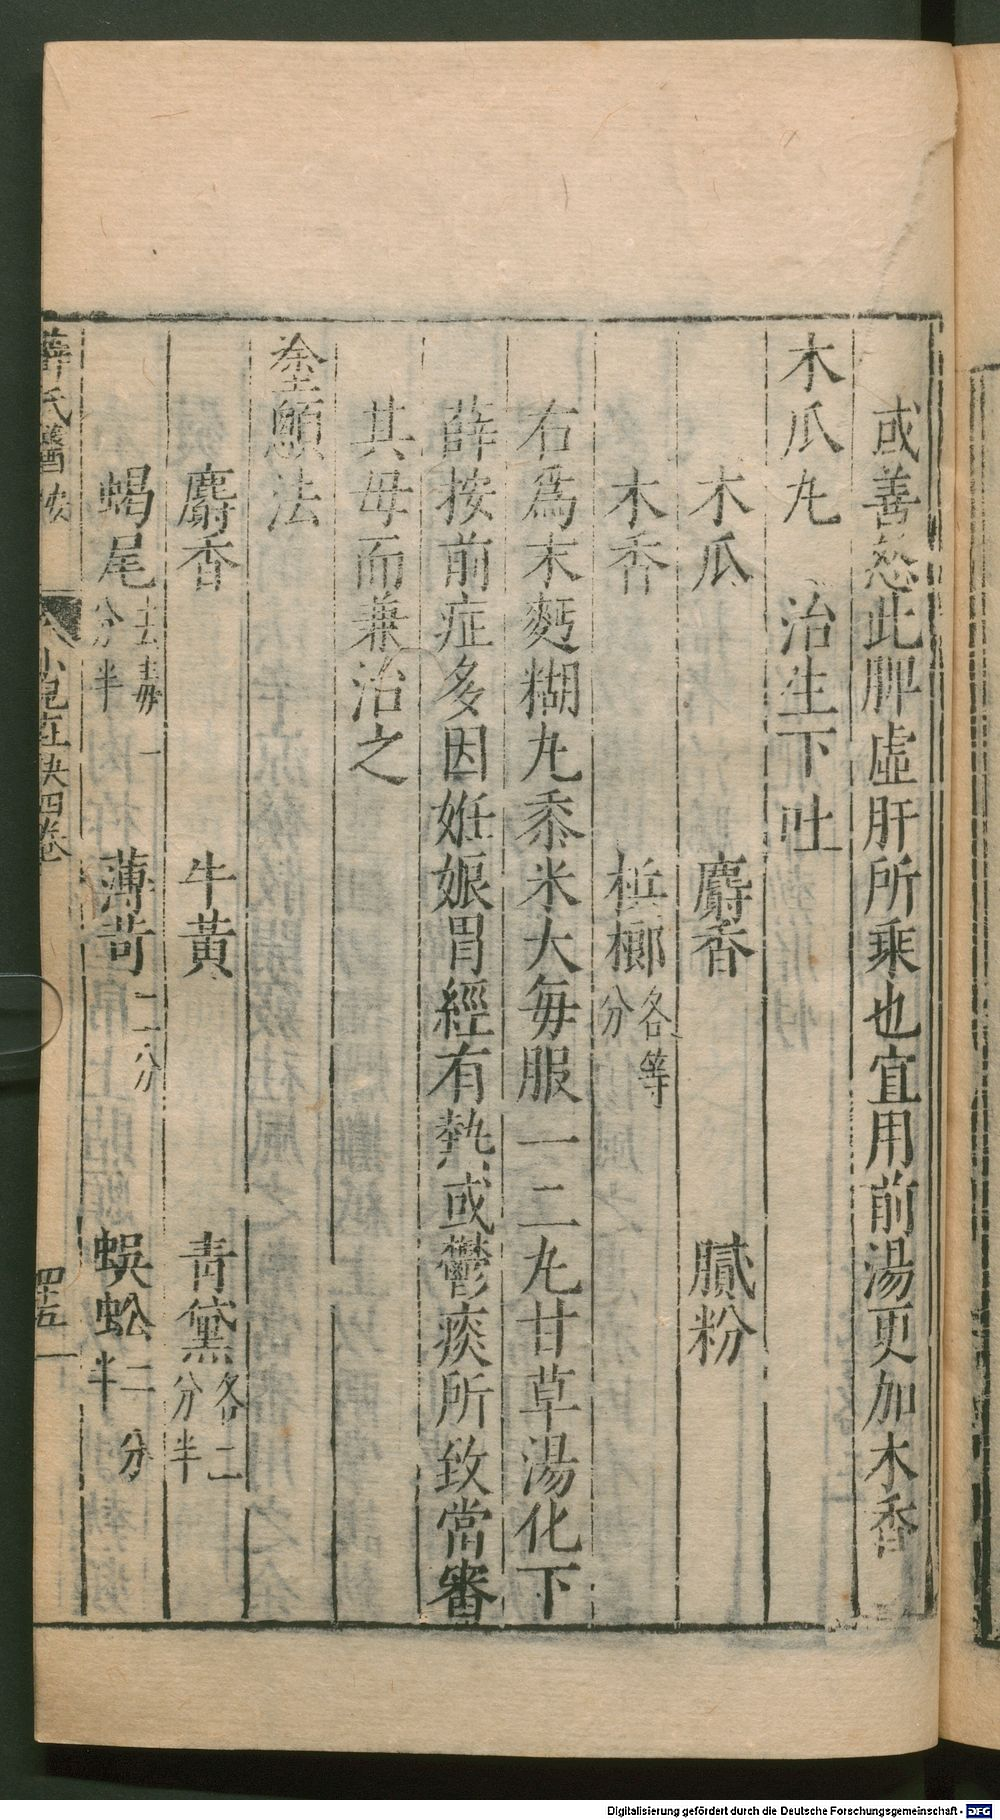 或善怒此脾虛肝所乘也宜用前湯更加木香
木瓜丸　治生下吐
木瓜　麝香　膩粉
木香　梹榔各等分
右爲末麪糊丸黍米大每服一二丸甘草湯化下
薛按前症多因姙娠胃經有熱或鬱痰所致當審
其母而兼治之
塗顖法
麝香　牛黃　青黛各二分半
蝎尾去毒一分半　薄苛二分　蜈蚣二分半
薛氏醫按　小兒直訣四卷　四十五
Digitalisierung gefördert durch die Deutsche Forschungsgemeinschaft - DFG